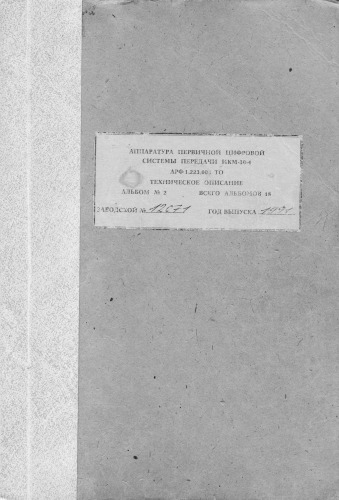 АППАРАТУРА ПЕРВИЧНОЙ ЦИФРОВОЙ
СИСТЕМЫ ПЕРЕДАЧИ ИКМ-30-4
ТО
ТЕХНИЧЕСКОЕ ОПИСАНИЕ
АЛЬБОМ № 2 ВСЕГО АЛЬБОМОВ 18
ЗАВОДСКОЙ № 12671 ГОД ВЫПУСКА 1991